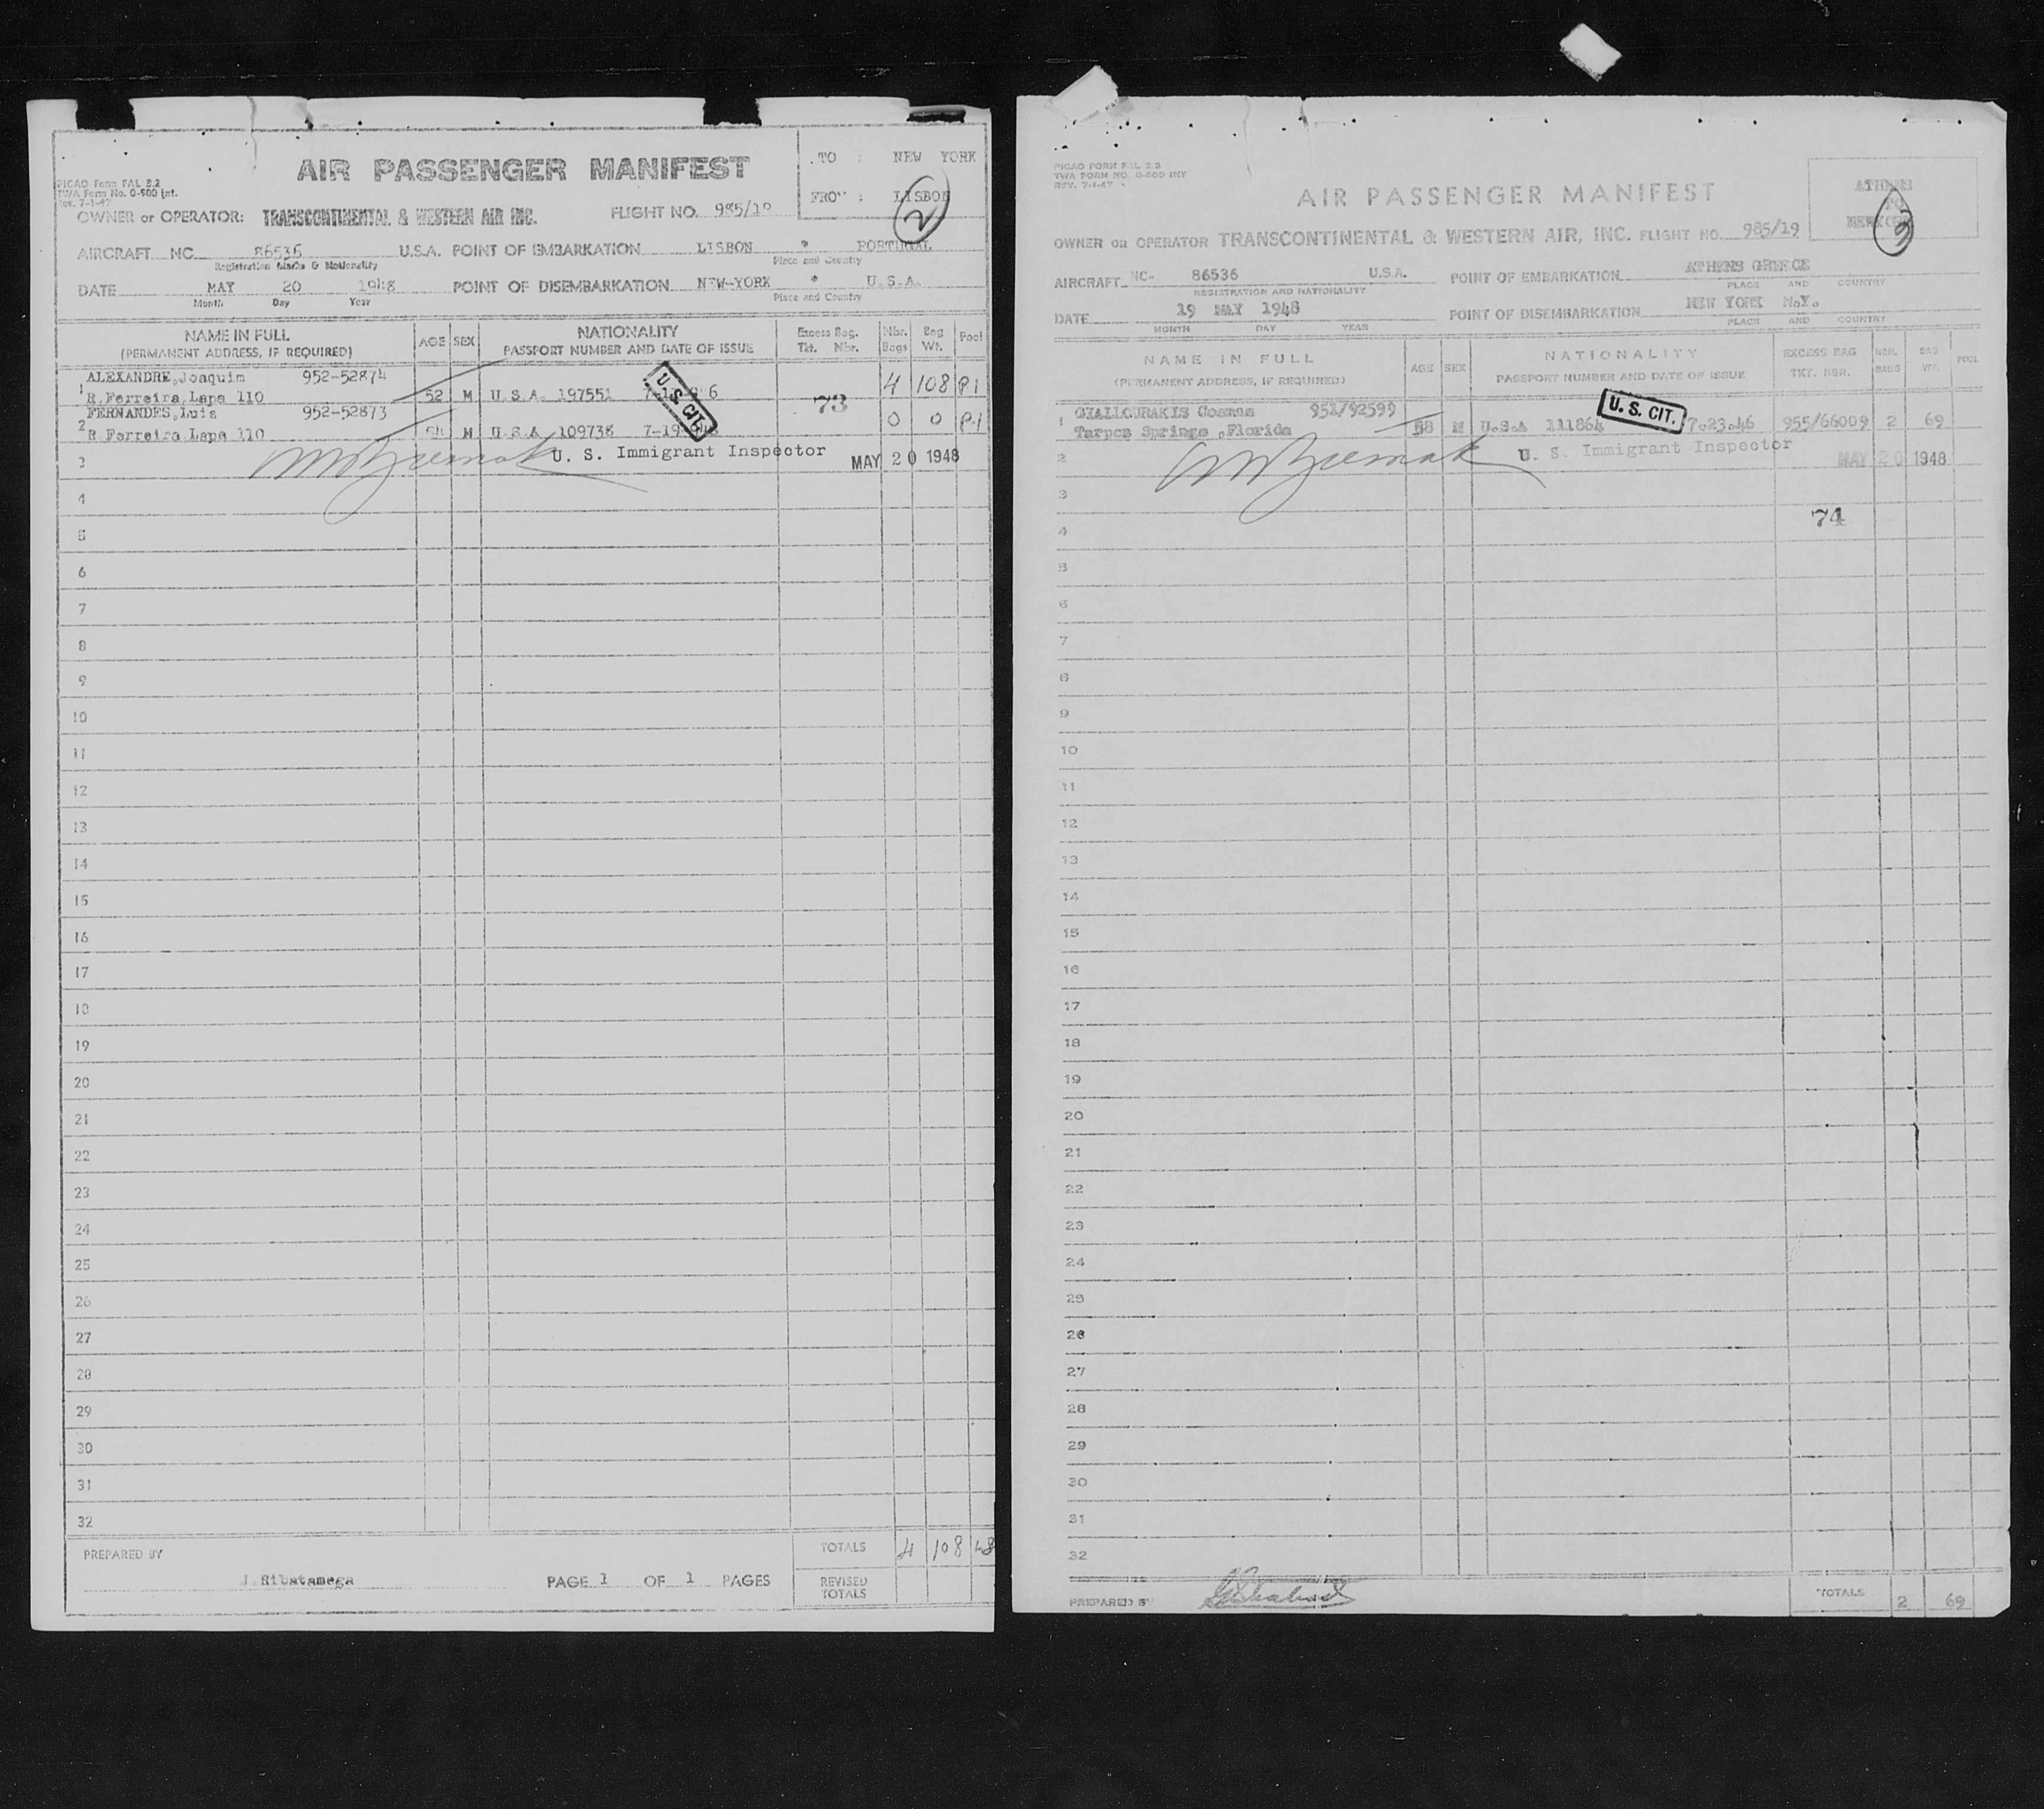 AIR PASSENGER MANIFEST
TO : NEW YORK
FROM : LISBON
2
PICAO Form FAL 2.2
TWA Form No. 0-500 Int.
Rev. 7-1-47
OWNER or OPERATOR: TRANSCONTINENTAL & WESTERN AIR INC. FLIGHT NO. 985/19
AIRCRAFT NC 86536 U.S.A. POINT OF EMBARKATION LISBON * PORTUGAL
Registration Marks & Nationality Place and Country
DATE MAY 20 1948 POINT OF DISEMBARKATION NEW-YORK * U.S.A.
Month Day Year Place and Country
NAME IN FULL
(PERMANENT ADDRESS, IF REQUIRED)
AGE SEX
NATIONALITY
PASSPORT NUMBER AND DATE OF ISSUE
Excess Bag. Tkt. Nbr.
Nbr. Bags
Bag Wt.
Pool
ALEXANDRE,Joaquim 952-52874
1 R.Ferreira Lapa 110 52 M U.S.A. 197551 4 108 P1
FERNANDES,Luis 952-52873 73
2 R Ferreira Lapa 110 54 M U.S.A 109738 7-19-46 0 0 P1
U.S. CIT.
3 U. S. Immigrant Inspector MAY 20 1948
4
5
6
7
8
9
10
11
12
13
14
15
16
17
18
19
20
21
22
23
24
25
26
27
28
29
30
31
32
PREPARED BY TOTALS 4 108
J.Ribatamega PAGE 1 OF 1 PAGES REVISED TOTALS
PICAO FORM FAL 2.2
TWA FORM NO. 0-500 INT
REV. 7-1-47
AIR PASSENGER MANIFEST
ATHENS
TO
NEW YORK
3
OWNER OR OPERATOR TRANSCONTINENTAL & WESTERN AIR, INC. FLIGHT NO. 985/19
AIRCRAFT NC- 86536 U.S.A. POINT OF EMBARKATION ATHENS GREECE
REGISTRATION AND NATIONALITY PLACE AND COUNTRY
DATE 19 MAY 1948 POINT OF DISEMBARKATION NEW YORK N.Y.
MONTH DAY YEAR PLACE AND COUNTRY
NAME IN FULL
(PERMANENT ADDRESS, IF REQUIRED)
AGE SEX
NATIONALITY
PASSPORT NUMBER AND DATE OF ISSUE
EXCESS BAG TKT. NBR.
NBR. BAGS
BAG WT.
POOL
GIALLOURAKIS Cosmas 952/92599
1 Tarpos Springs ,Florida 58 M U.S.A 111864 7.23.46 955/66009 2 69
U. S. CIT.
2 U. S. Immigrant Inspector MAY 20 1948
3
74
4
5
6
7
8
9
10
11
12
13
14
15
16
17
18
19
20
21
22
23
24
25
26
27
28
29
30
31
32
PREPARED BY TOTALS 2 69